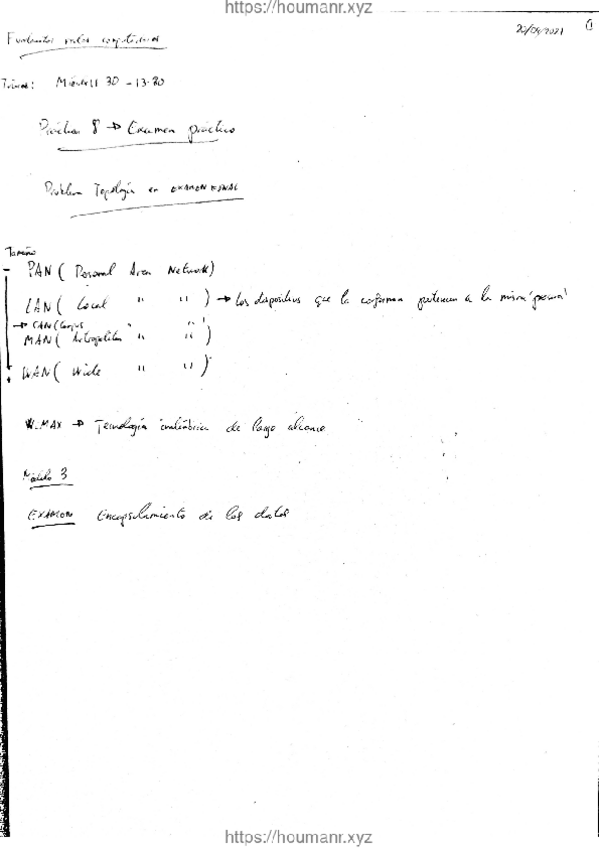 https://houmanr.xyz
20/09/2021 1
Fundamentos redes computadores
: Miércoles 30 - 13:30
Práctica 8 → Examen práctico
Problema Topología en EXAMEN FINAL
Tamaño
- PAN ( Personal Area Network )
LAN ( Local " " ) → Los dispositivos que la conforman pertenecen a la misma 'persona'
→ CAN ( Campus " " )
MAN ( Metropolitan " " )
WAN ( Wide " " )
WiMAX → Tecnología inalámbrica de largo alcance
Módulo 3
EXAMEN Encapsulamiento de los datos
https://houmanr.xyz